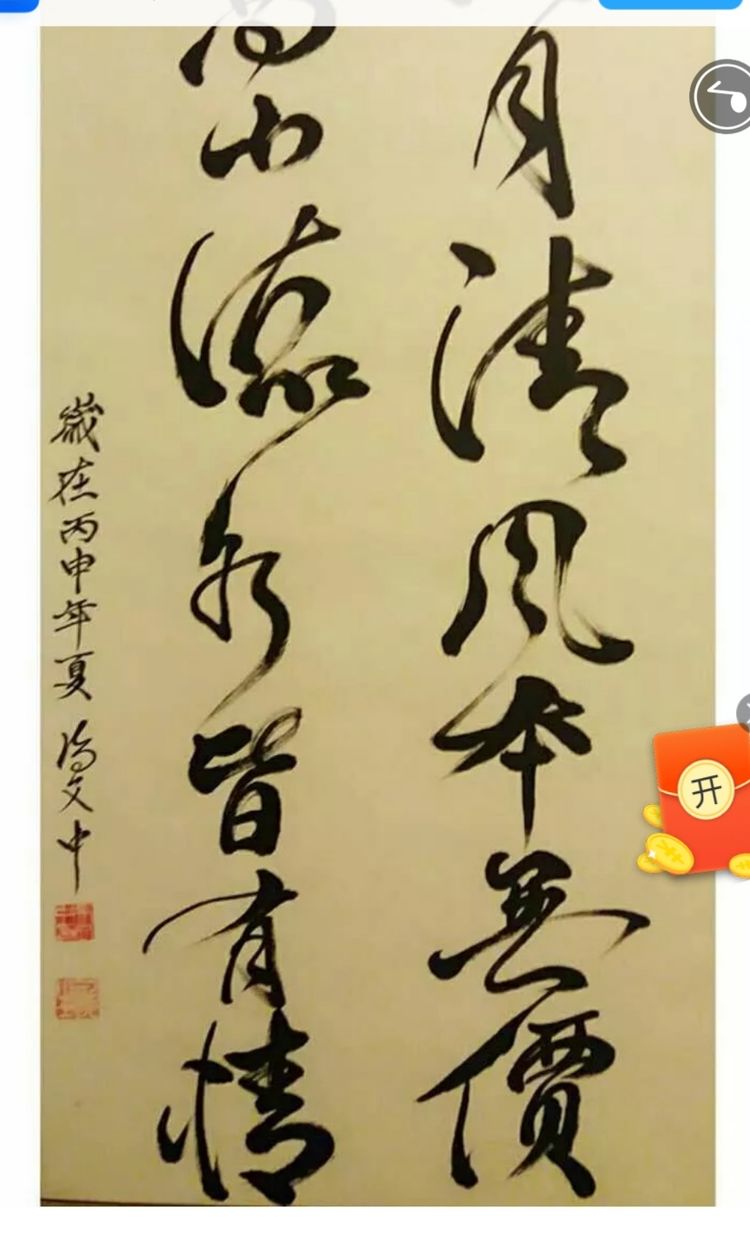 月清風本無價
高山流水皆有情
歲在丙申年夏
文中
开